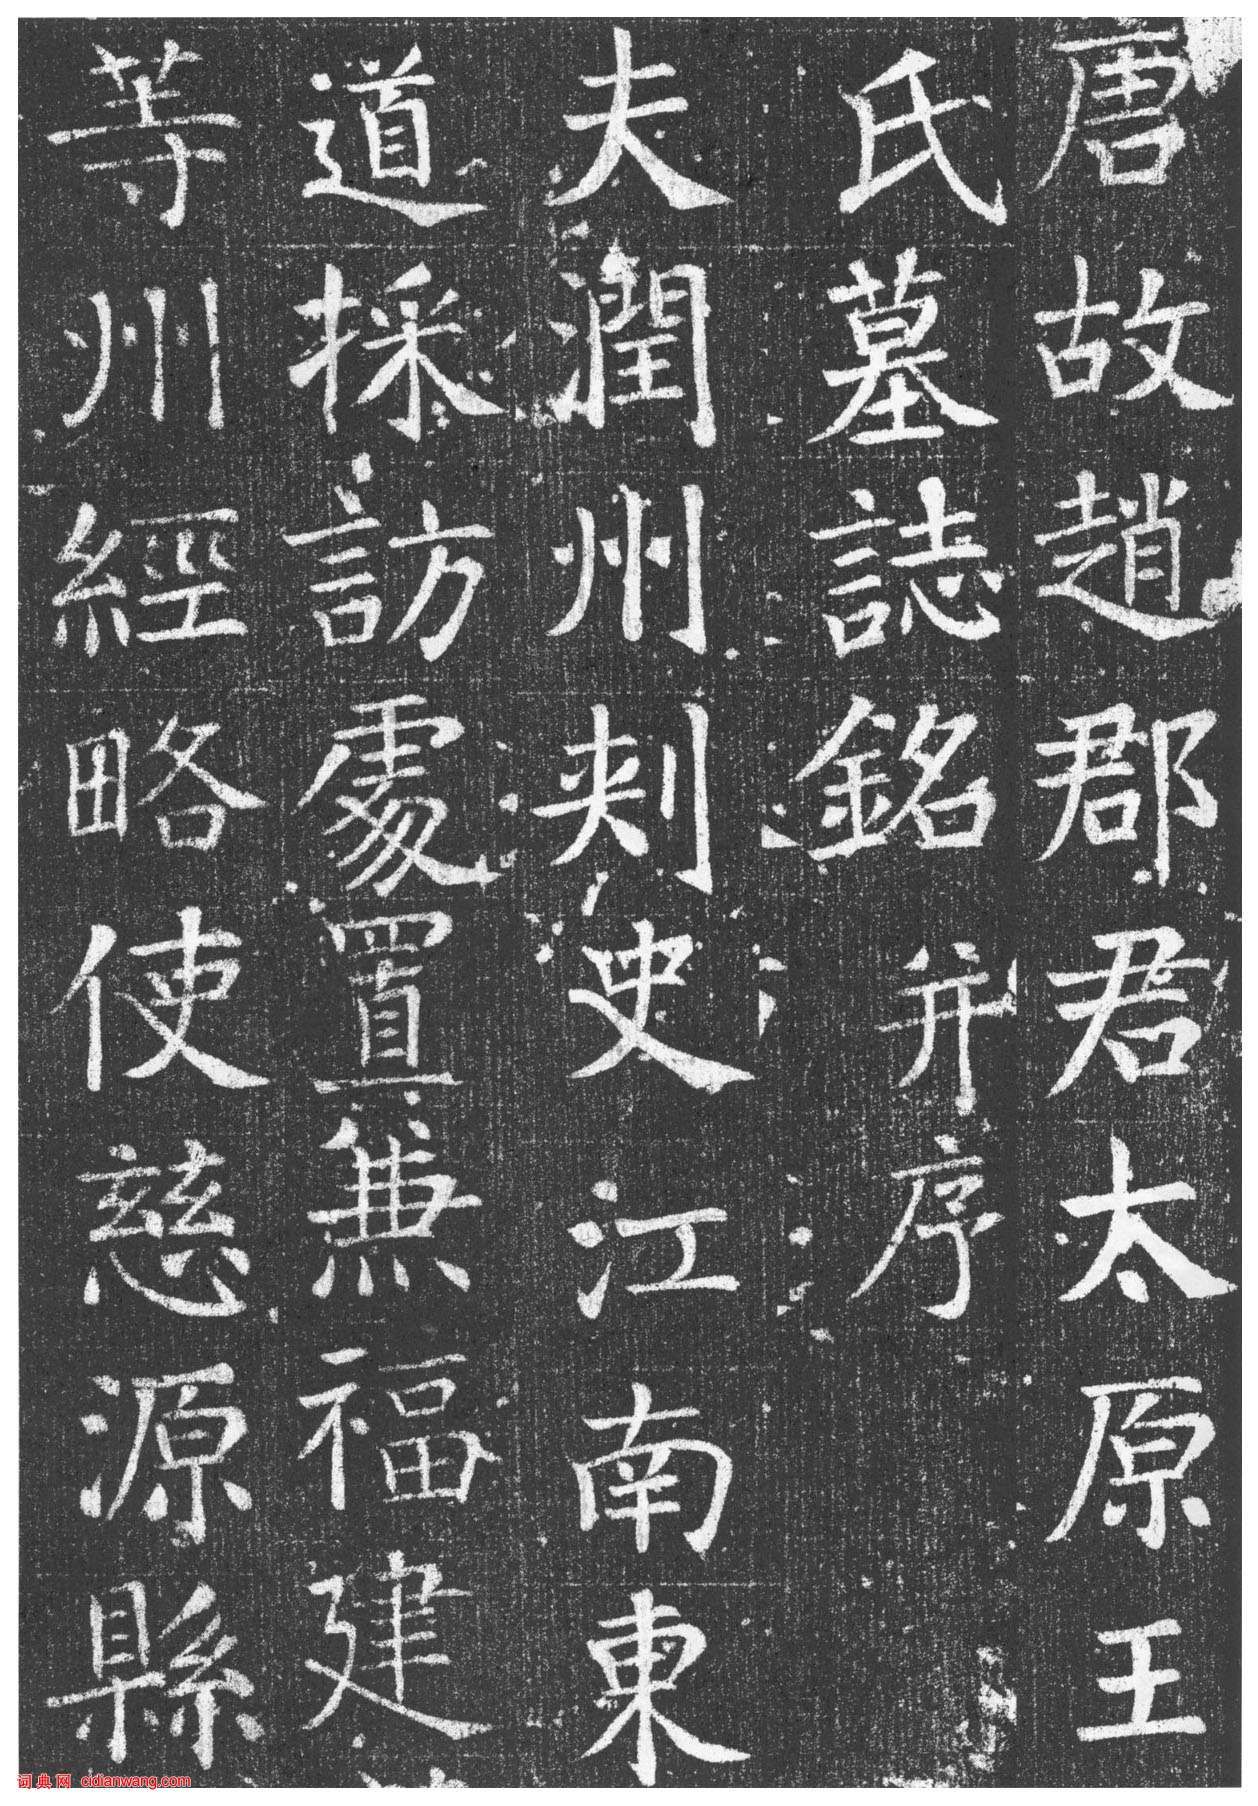 唐故趙郡君太原王
氏墓誌銘并序
夫潤州刺史江南東
道採訪處置兼福建
等州經略使慈源縣
词典网 cidianwang.com